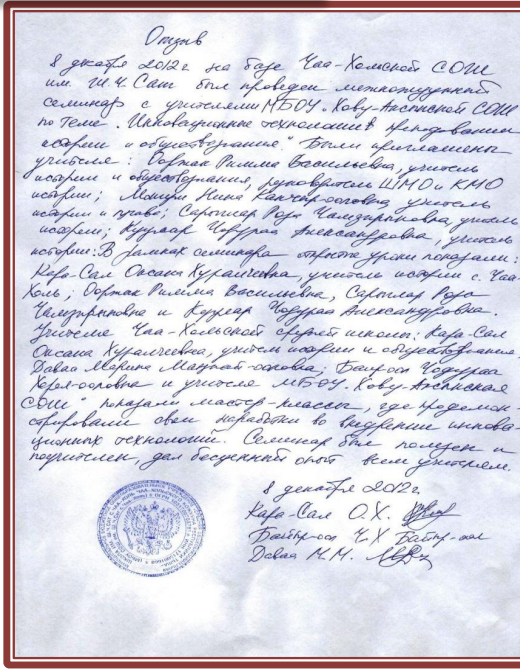 Отзыв
8 декабря 2012г. на базе Чаа-Хольской СОШ
им. Ш.Ч. Сат был проведен межкожуунный
семинар с учителями МБОУ "Хову-Аксынской СОШ
по теме "Инновационные технологии в преподавании
истории и обществознания." Были приглашены
учителя: Ооржак Римма Васильевна, учитель
истории и обществознания, руководитель ШМО и КМО
истории; Монгуш Нина учитель
истории и права; Сарыглар Роза учитель
истории; Куулар Чодураа Александровна, учитель
истории. В рамках семинара открытые уроки показали:
Кара-Сал Оксана Хуралчеевна, учитель истории с. Чаа-
Холь; Ооржак Римма Васильевна, Сарыглар Роза
и Куулар Чодураа Александровна.
Учителя Чаа-Хольской средней школы: Кара-Сал
Оксана Хуралчеевна, учитель истории и обществознания,
Даваа Марина Байыр-оол Чодураа
и учителя МБОУ "Хову-Аксынская
СОШ" показали мастер-классы, где продемон-
стрировали свои наработки во внедрении иннова-
ционных технологий. Семинар был полезен и
поучителен, дал бесценный опыт всем учителям.
8 декабря 2012г.
Кара-Сал О.Х.
Ч.Х
Даваа М.М.